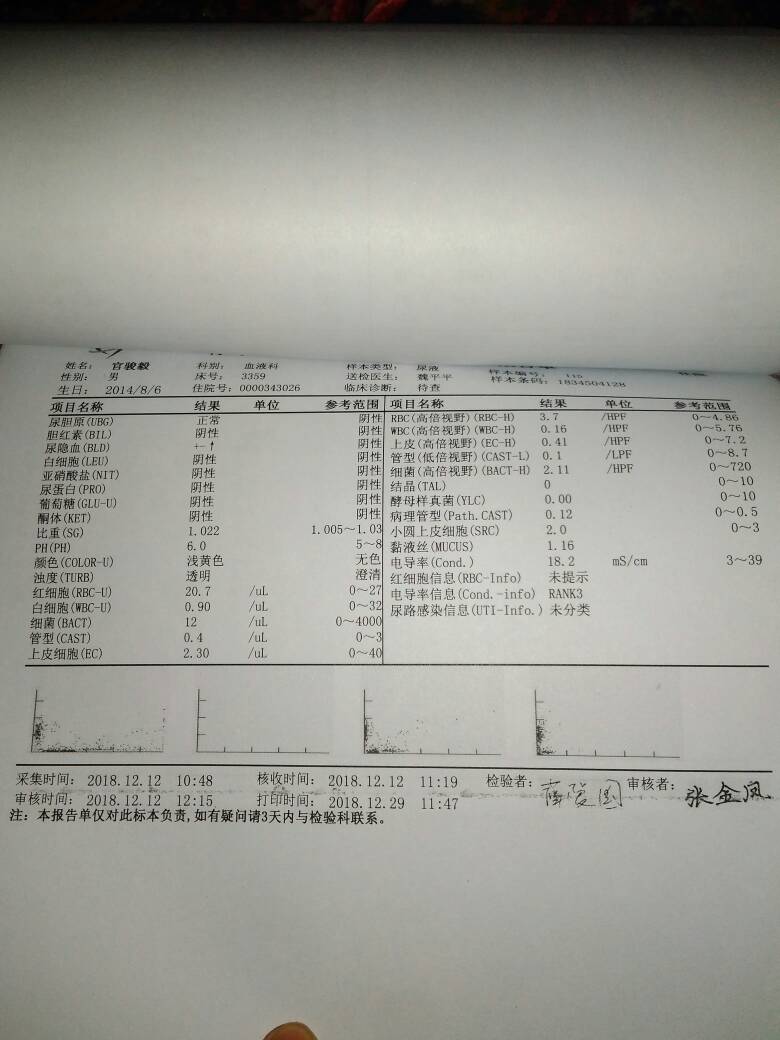 姓名： 官骏毅 科别： 血液科 样本类型： 尿液 样本编号： 115
性别： 男 床号： 3359 送检医生： 魏平平 样本条码： 1834504128
生日： 2014/8/6 住院号： 0000343026 临床诊断： 待查
项目名称 结果 单位 参考范围 项目名称 结果 单位 参考范围
尿胆原(UBG) 正常 阴性 RBC(高倍视野)(RBC-H) 3.7 /HPF 0～4.86
胆红素(BIL) 阴性 阴性 WBC(高倍视野)(WBC-H) 0.16 /HPF 0～5.76
尿隐血(BLD) +-↑ 阴性 上皮(高倍视野)(EC-H) 0.41 /HPF 0～7.2
白细胞(LEU) 阴性 阴性 管型(低倍视野)(CAST-L) 0.1 /LPF 0～8.7
亚硝酸盐(NIT) 阴性 阴性 细菌(高倍视野)(BACT-H) 2.11 /HPF 0～720
尿蛋白(PRO) 阴性 阴性 结晶(TAL) 0 0～10
葡萄糖(GLU-U) 阴性 阴性 酵母样真菌(YLC) 0.00 0～10
酮体(KET) 阴性 阴性 病理管型(Path.CAST) 0.12 0～0.5
比重(SG) 1.022 1.005～1.03 小圆上皮细胞(SRC) 2.0 0～3
PH(PH) 6.0 5～8 黏液丝(MUCUS) 1.16
颜色(COLOR-U) 浅黄色 无色 电导率(Cond.) 18.2 mS/cm 3～39
浊度(TURB) 透明 澄清 红细胞信息(RBC-Info) 未提示
红细胞(RBC-U) 20.7 /uL 0～27 电导率信息(Cond.-info) RANK3
白细胞(WBC-U) 0.90 /uL 0～32 尿路感染信息(UTI-Info.) 未分类
细菌(BACT) 12 /uL 0～4000
管型(CAST) 0.4 /uL 0～3
上皮细胞(EC) 2.30 /uL 0～40
采集时间： 2018.12.12 10:48 核收时间： 2018.12.12 11:19 检验者： 审核者： 张金凤
审核时间： 2018.12.12 12:15 打印时间： 2018.12.29 11:47
注：本报告单仅对此标本负责,如有疑问请3天内与检验科联系。